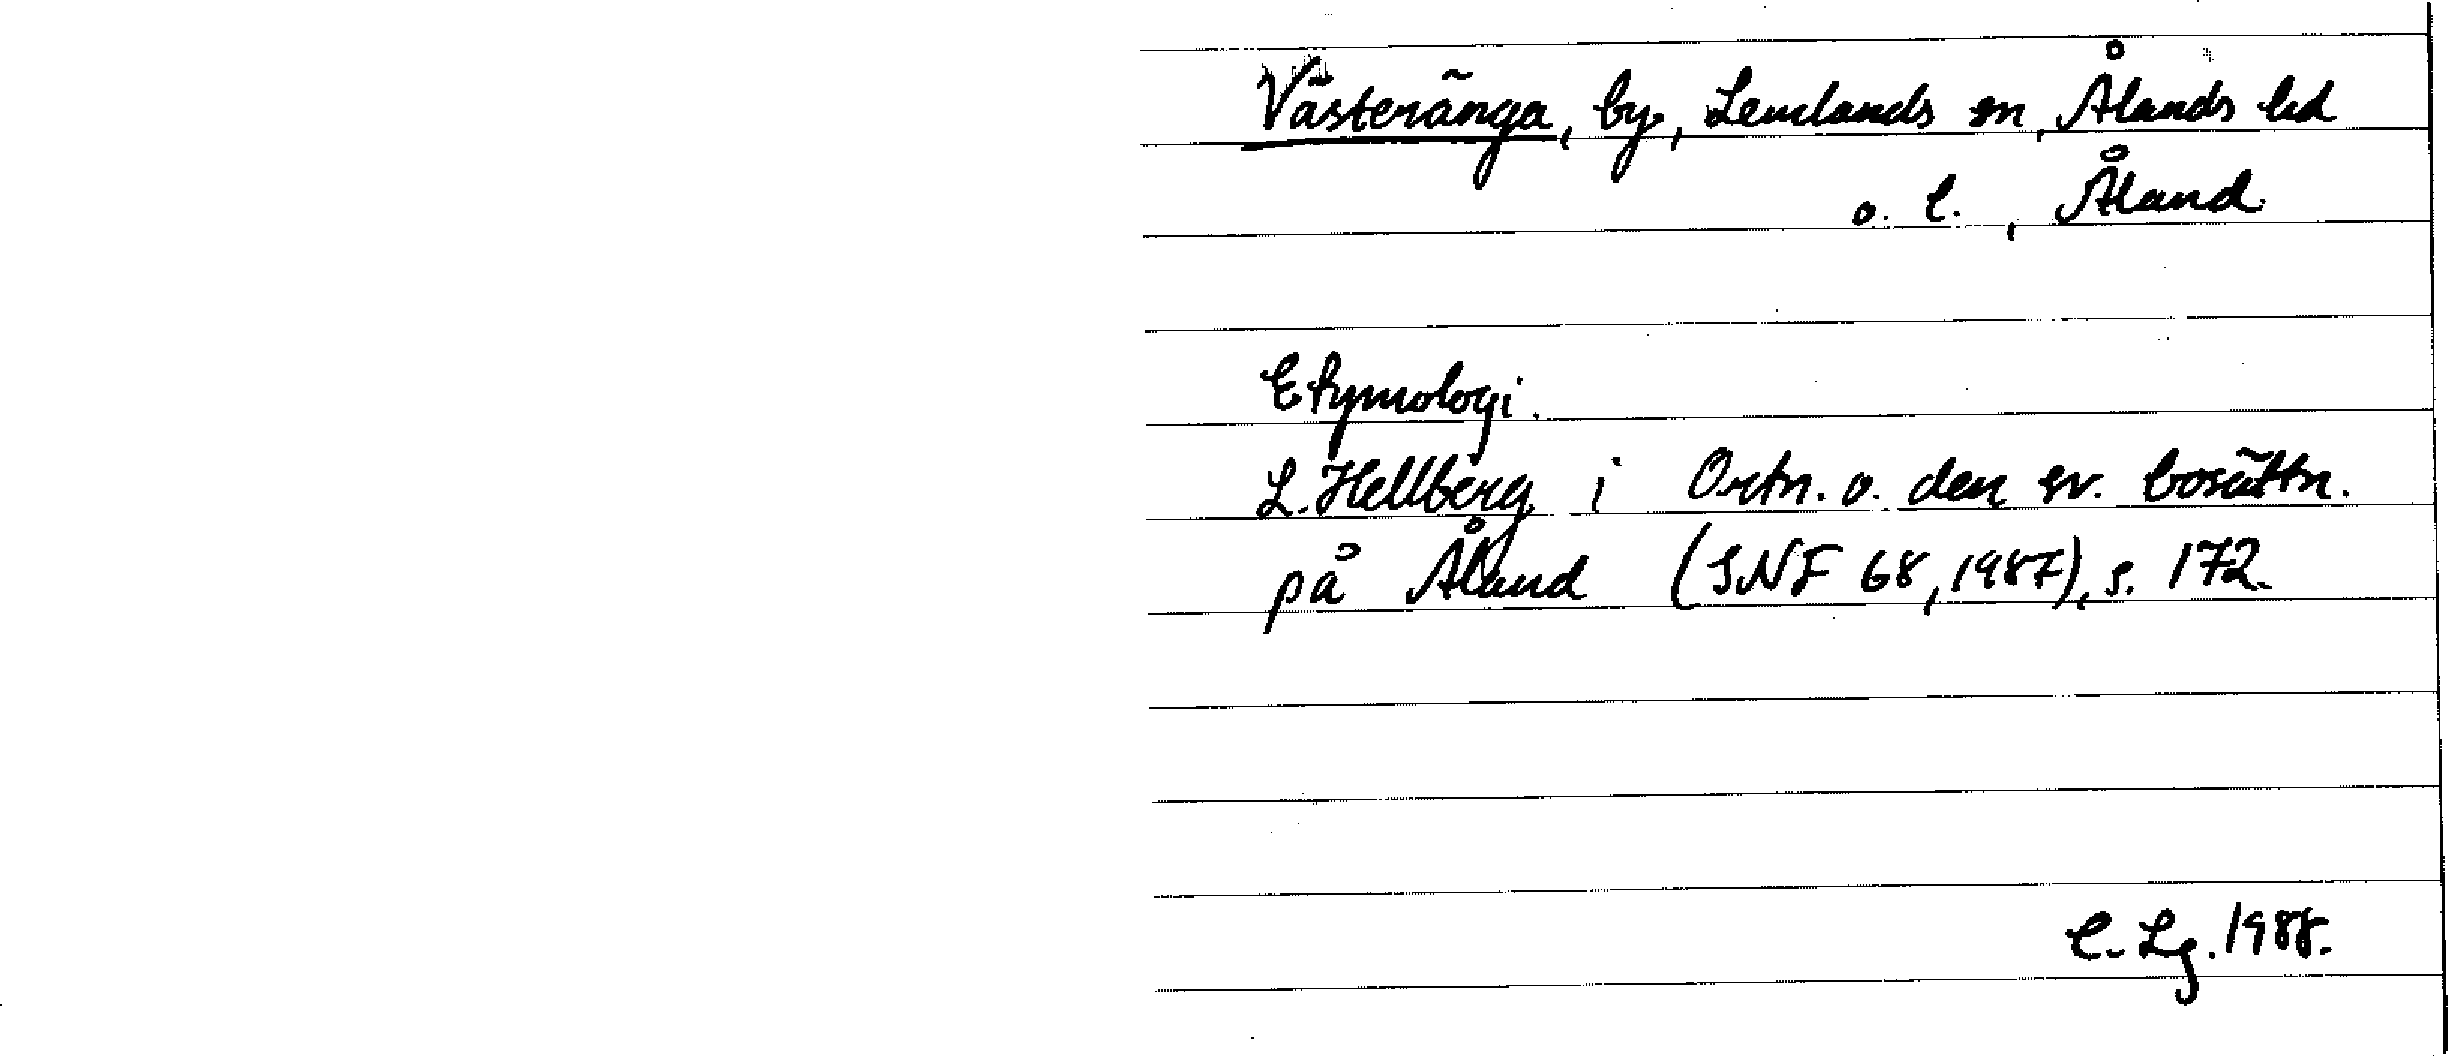 Västeränga, by, Lemlands sn, Ålands hd
o. l., Åland
Etymologi.
L. Hellberg i Ortn. o. den sv. bosättn.
på Åland (SNF 68, 1987), s. 172.
C. Lg. 1988.